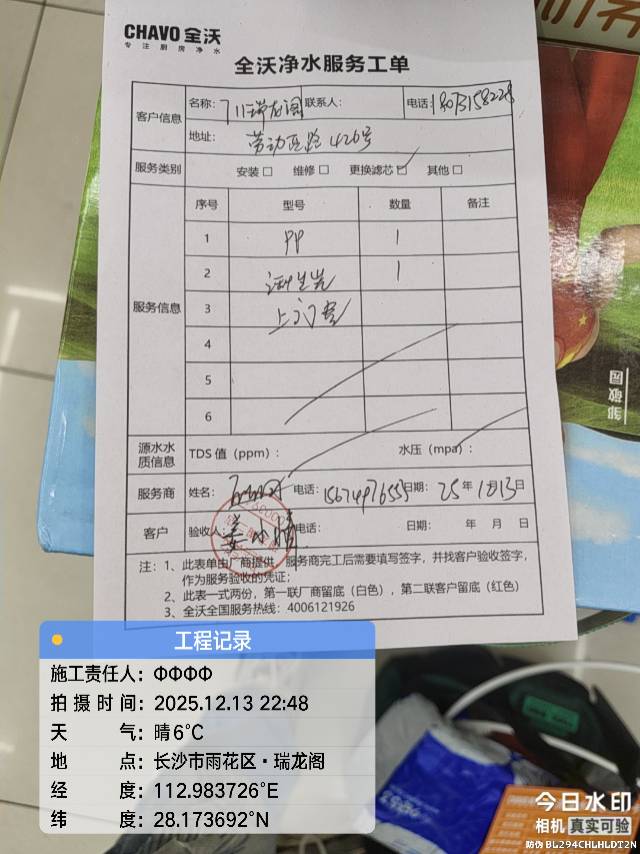 CHAVO 全沃
专注厨房净水
全沃净水服务工单
客户信息 名称： 瑞龙阁 联系人： 电话：
地址： 劳动西路420号
服务类别 安装□ 维修□ 更换滤芯☑ 其他□
服务信息
序号 型号 数量 备注
1 PP 1
2 1
3 上门费
4
5
6
源水水质信息 TDS 值（ppm）： 水压（mpa）：
服务商 姓名： 电话：15674976555 日期： 25年 12月13日
客户 验收人： 电话： 日期： 年 月 日
注：1、此表单由厂商提供，服务商完工后需要填写签字，并找客户验收签字，
作为服务验收的凭证；
2、此表一式两份，第一联厂商留底（白色），第二联客户留底（红色）
3、全沃全国服务热线：4006121926
邹敬园
工程记录
施工责任人：ΦΦΦΦ
拍摄时间：2025.12.13 22:48
天气：晴 6℃
地点：长沙市雨花区·瑞龙阁
经度：112.983726°E
纬度：28.173692°N
今日水印
相机 真实可验
防伪 BL294CHLHLDT2N